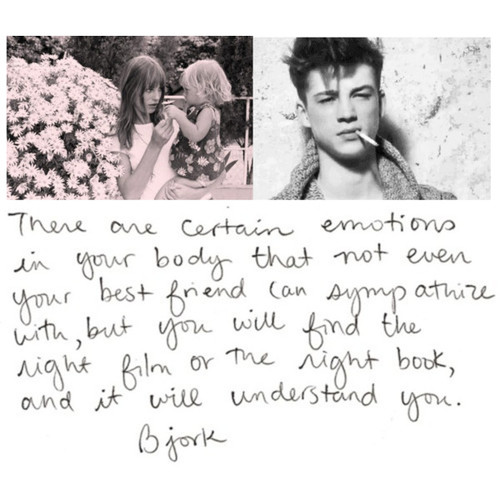 There are certain emotions
in your body that not even
your best friend can sympathize
with, but you will find the
right film or the right book,
and it will understand you.
Bjork